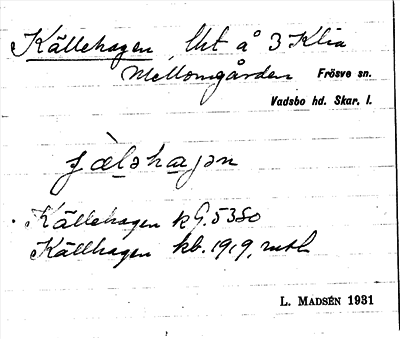 Källehagen, lht å 3 Klia
Mellomgården Frösve sn.
Vadsbo hd. Skar. l.
Källehagen kG. 5380
Källhagen kb. 1919,
L. MADSÉN 1931